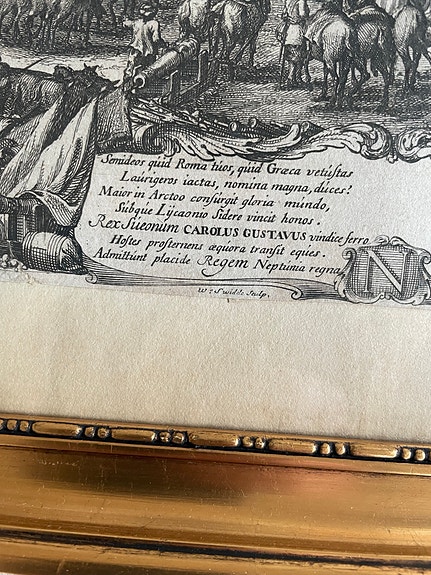 Semideos quid Roma tuos, quid Græca vetustas
Laurigeros iactas, nomina magna, duces?
Maior in Arctoo consurgit gloria mundo,
Subque Lycaonio Sidere vincit honos.
Rex Sueonum CAROLUS GUSTAVUS vindice ferro
Hostes prosternens æquora transit eques.
Admittunt placide Regem Neptunia regna
N
W: Swidde Sculp.